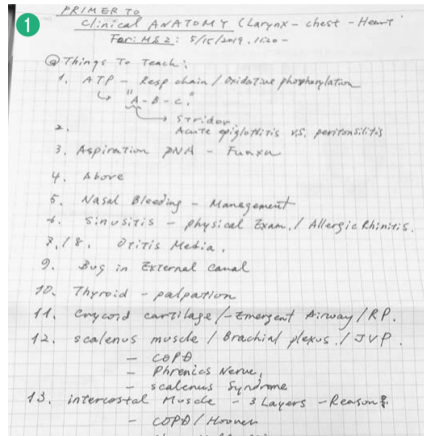 1
PRIMER TO
Clinical ANATOMY (Larynx - chest - Heart
For: MS2: 5/15/2019, 1520 -
Things To Teach:
1. ATP - Resp chain / Oxidative phosphorylation
"A - B - C."
Stridor
2. Acute epiglottitis vs. peritonsilitis
3. Aspiration PNA -
4. Above
5. Nasal Bleeding - Management
6. Sinusitis - physical Exam. / Allergic Rhinitis.
7./8. Otitis Media.
9. Bug in External Canal
10. Thyroid - palpation
11. Crycoid cartilage / - Emergent Airway / RP.
12. scalenus muscle / Brachial plexus. / JVP.
- COPD
- Phrenics Nerve,
- scalenus Syndrome
13. intercostal Muscle - 3 Layers - Reason?
- COPD / Hoover